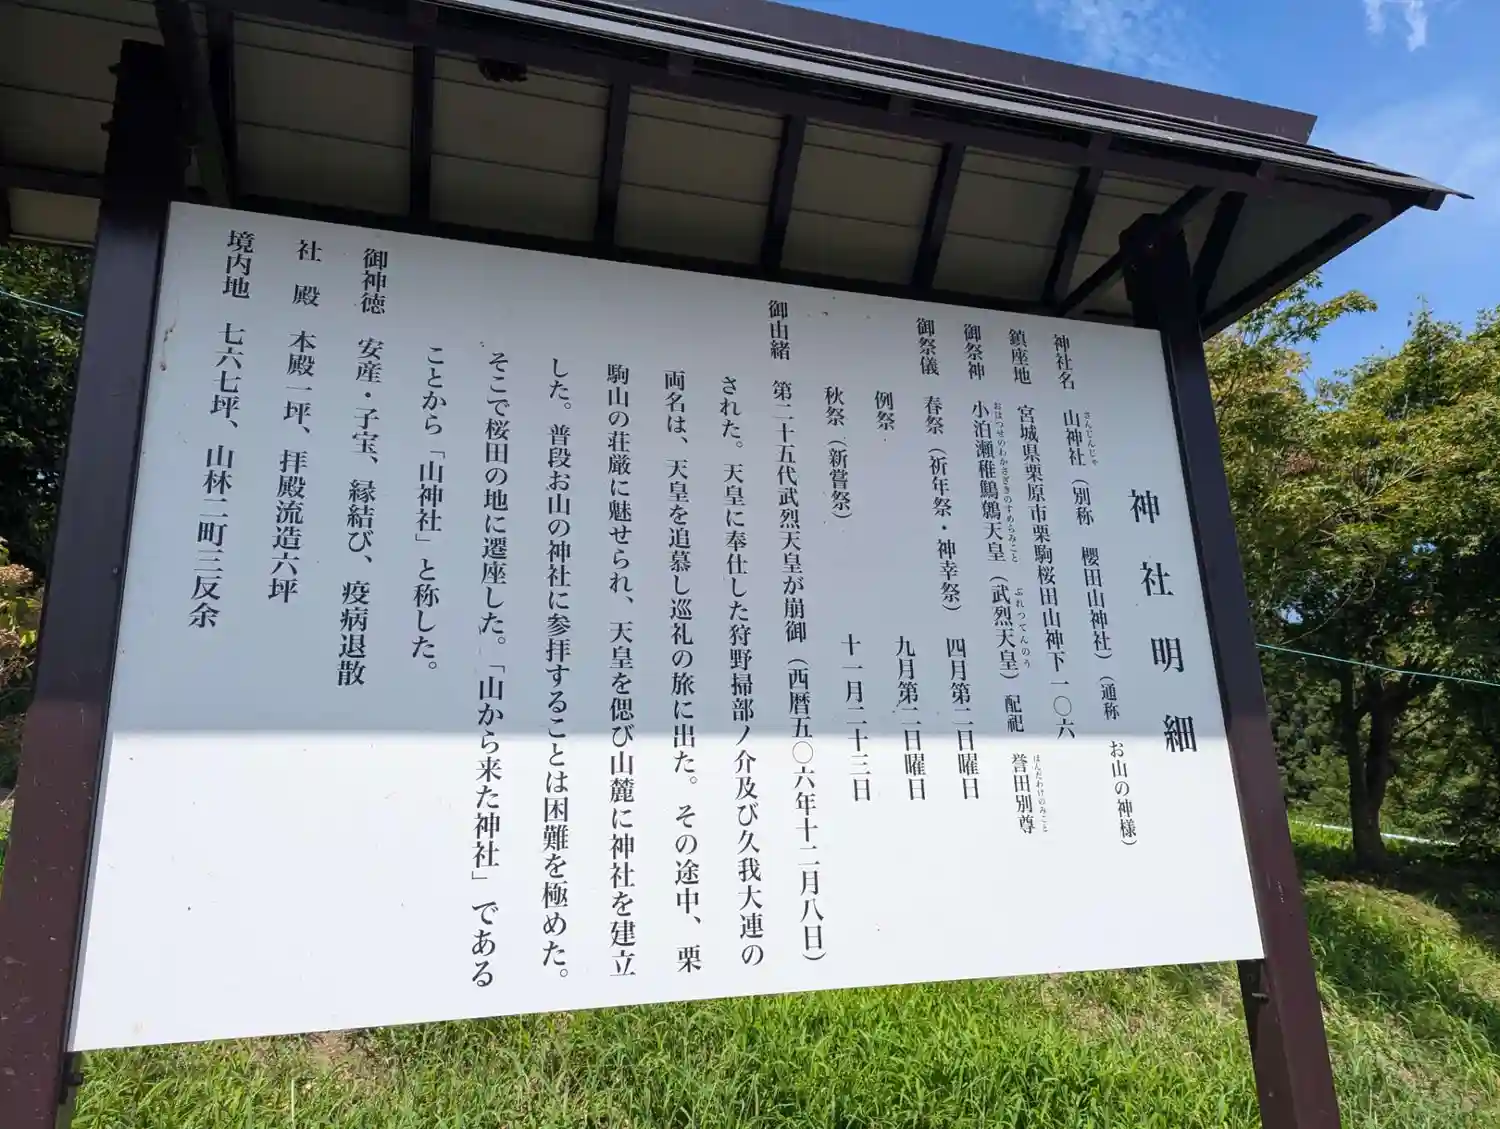 神社明細
神社名　山神社（別称　櫻田山神社）（通称　お山の神様）
さんじんじゃ
鎮座地　宮城県栗原市栗駒桜田山神下一〇六
御祭神　小泊瀬稚鷦鷯天皇（武烈天皇）　配祀　誉田別尊
おはつせのわかさざきのすめらみこと　ぶれつてんのう　ほんだわけのみこと
御祭儀　春祭（祈年祭・神幸祭）　四月第二日曜日
例祭　九月第二日曜日
秋祭（新嘗祭）　十一月二十三日
御由緒　第二十五代武烈天皇が崩御（西暦五〇六年十二月八日）
された。天皇に奉仕した狩野掃部ノ介及び久我大連の
両名は、天皇を追慕し巡礼の旅に出た。その途中、栗
駒山の荘厳に魅せられ、天皇を偲び山麓に神社を建立
した。普段お山の神社に参拝することは困難を極めた。
そこで桜田の地に遷座した。「山から来た神社」である
ことから「山神社」と称した。
御神徳　安産・子宝、縁結び、疫病退散
社殿　本殿一坪、拝殿流造六坪
境内地　七六七坪、山林二町三反余